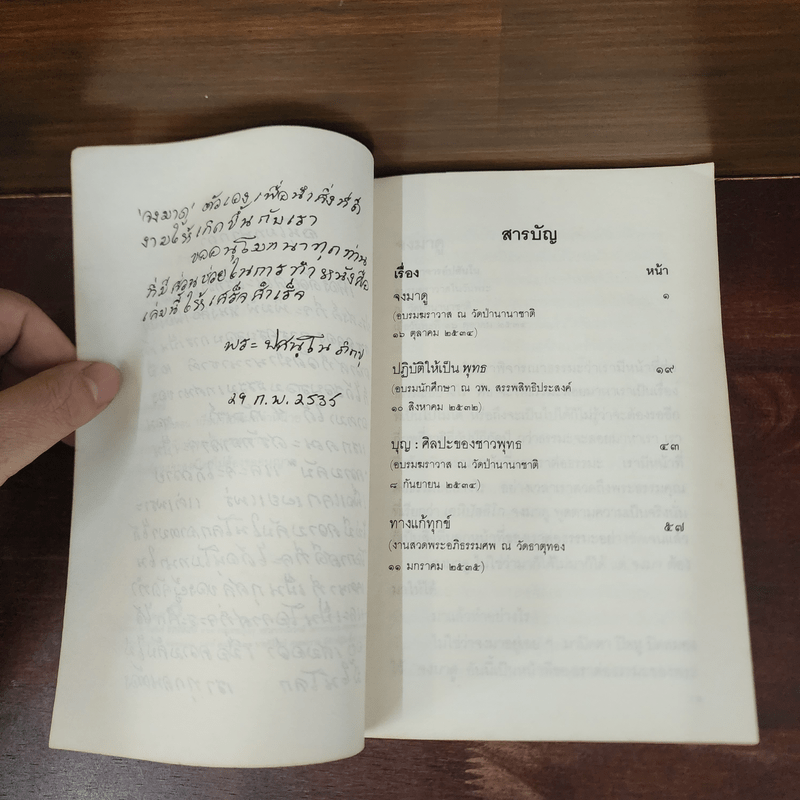 'จงมาดู' ตัวเอง เพื่อนำสิ่งที่ดี
งามให้เกิดขึ้นกับเรา
ขออนุโมทนาทุกท่าน
ที่มีส่วนช่วยในการทำหนังสือ
เล่มนี้ให้เสร็จสำเร็จ
พระ ปสนฺโน ภิกขุ
29 ก.พ. 2535
สารบัญ
เรื่อง หน้า
จงมาดู ๑
(อบรมฆราวาส ณ วัดป่านานาชาติ
๑๖ ตุลาคม ๒๕๓๔)
ปฏิบัติให้เป็น พุทธ ๑๙
(อบรมนักศึกษา ณ วพ. สรรพสิทธิประสงค์
๑๐ สิงหาคม ๒๕๓๒)
บุญ : ศิลปะของชาวพุทธ ๔๓
(อบรมฆราวาส ณ วัดป่านานาชาติ
๘ กันยายน ๒๕๓๔)
ทางแก้ทุกข์ ๕๗
(งานสวดพระอภิธรรมศพ ณ วัดธาตุทอง
๑๑ มกราคม ๒๕๓๕)